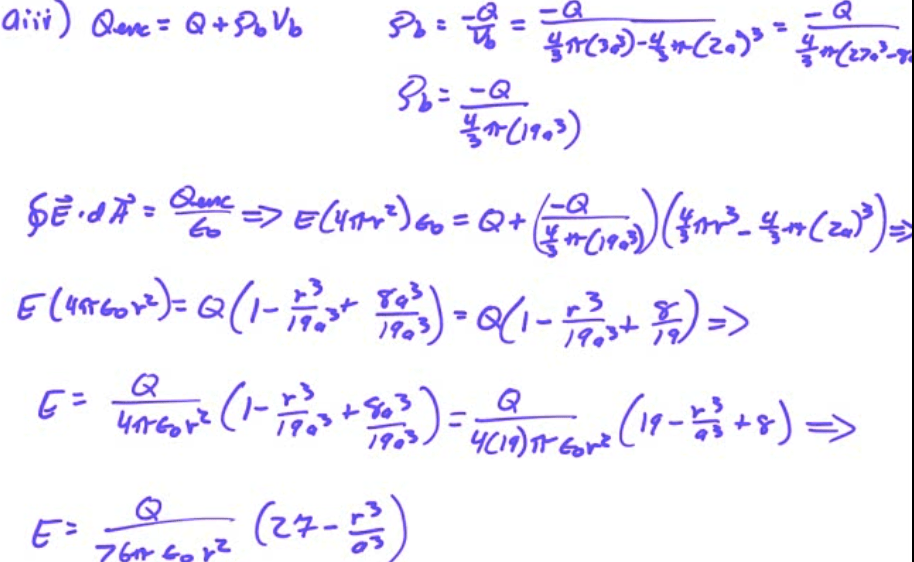 aiii) Qenc = Q + ρb Vb    ρb = -Q/Vb = -Q/(4/3 π(3a³) - 4/3 π(2a)³) = -Q/(4/3 π(27a³-8a
ρb = -Q/(4/3 π(19a³))
∮E⃗·dA⃗ = Qenc/ε0 => E(4πr²)ε0 = Q + (-Q/(4/3 π(19a³)))(4/3 πr³ - 4/3 π(2a)³) =>
E(4πε0r²) = Q(1 - r³/19a³ + 8a³/19a³) = Q(1 - r³/19a³ + 8/19) =>
E = Q/4πε0r² (1 - r³/19a³ + 8a³/19a³) = Q/4(19)πε0r² (19 - r³/a³ + 8) =>
E = Q/76πε0r² (27 - r³/a³)